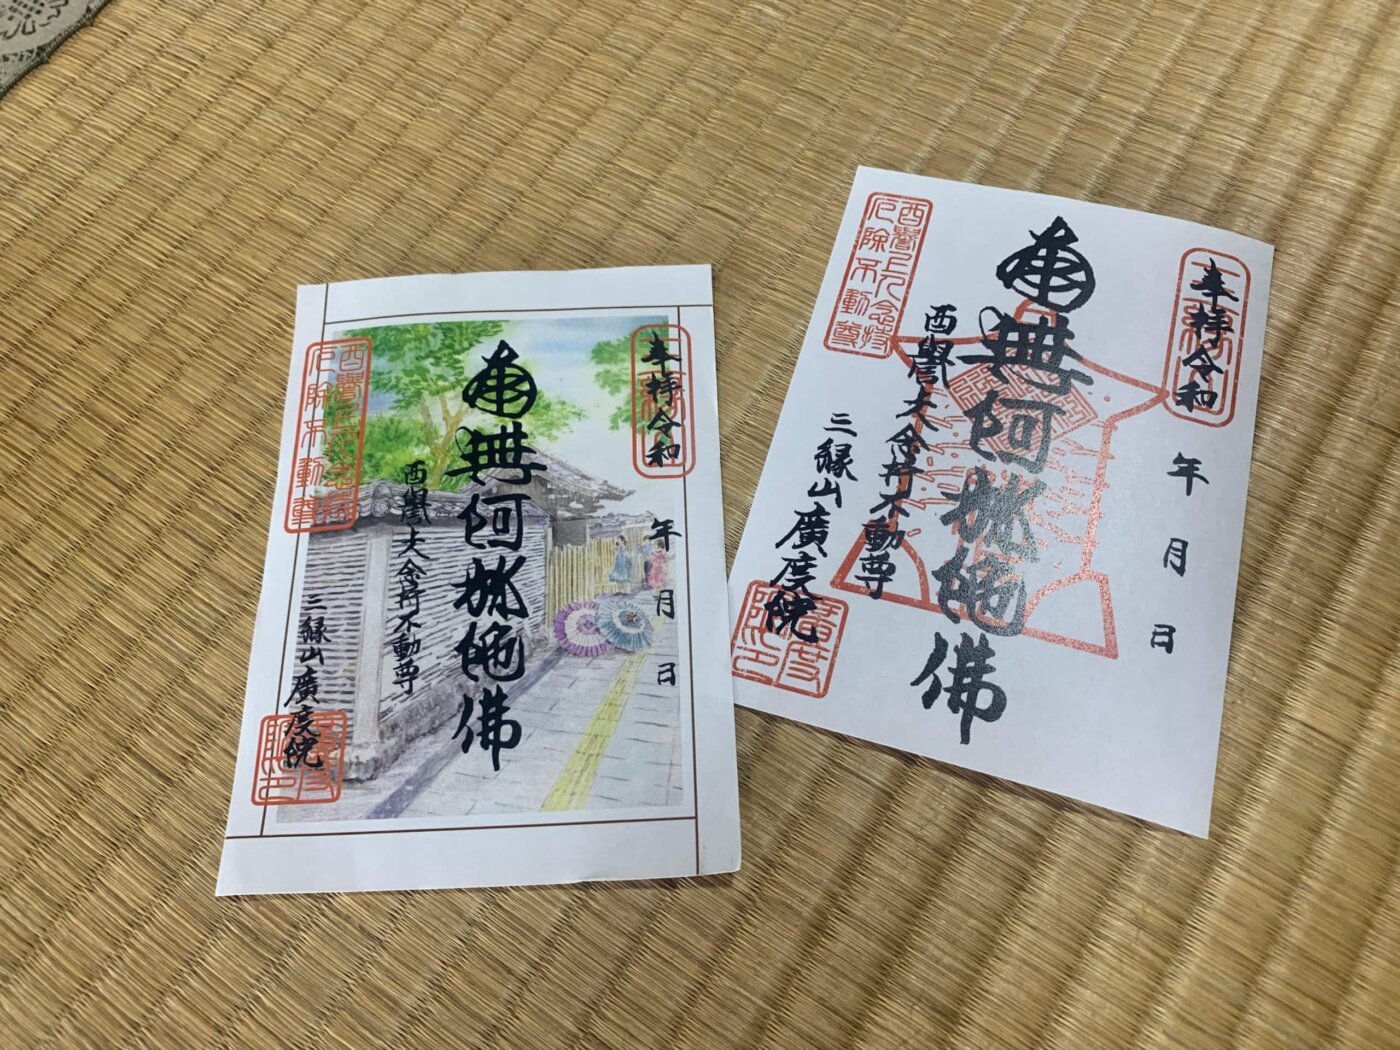 奉拝令和 年 月 日
南無阿弥陀佛
西譽上人念持不動尊
三縁山廣度院
西譽上人念持
厄除不動尊
廣度
院印
奉拝令和 年 月 日
南無阿弥陀佛
西譽上人念持不動尊
三縁山廣度院
西譽上人念持
厄除不動尊
廣度
院印